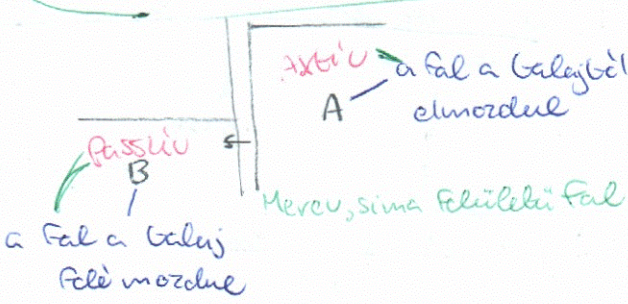 Aktív
a fal a talajtól
A
elmozdul
Passzív
B
Merev, sima felületű fal
a fal a talaj
felé mozdul